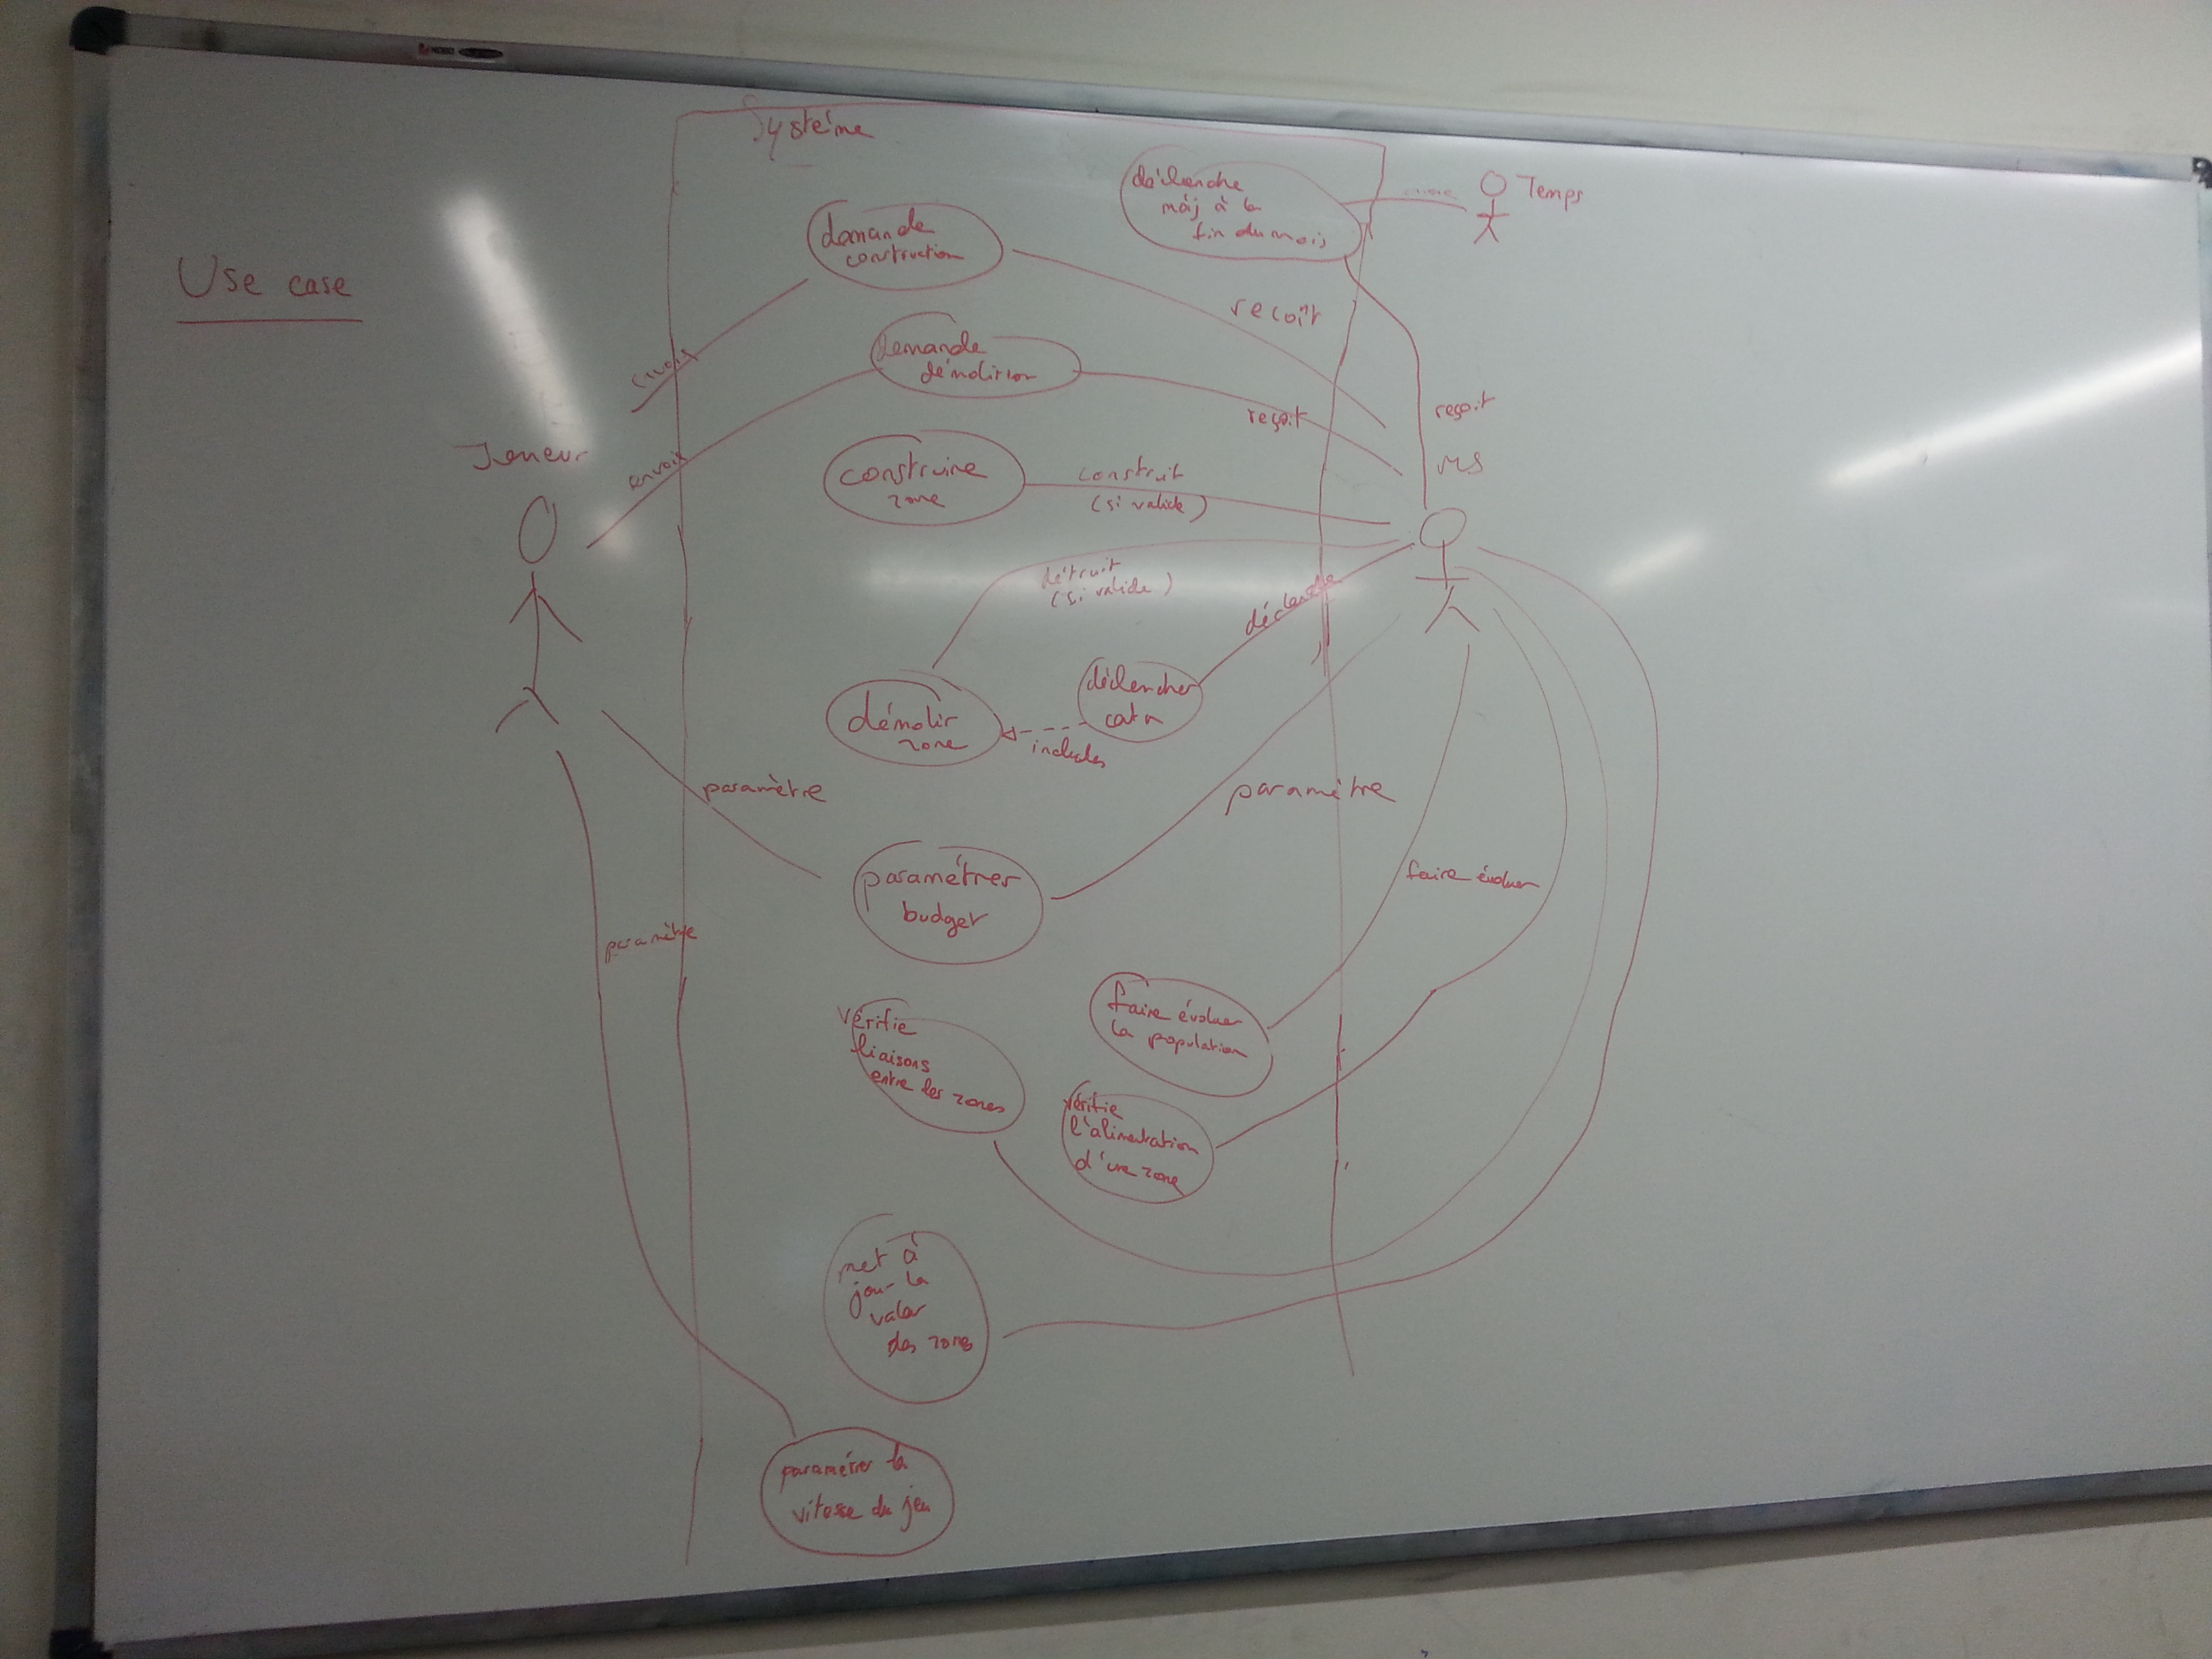 NOBO
Système
Use case
demande
construction
déclenche
màj à la
fin du mois
Temps
envois
reçoît
demande
démolition
envois
reçoit
reçoit
Joueur
MS
construire
zone
construit
(si valide)
détruit
(si valide)
déclenche
démolir
zone
déclencher
cata
includes
paramètre
paramètre
paramétrer
budget
faire évoluer
paramètre
faire évoluer
la population
vérifie
liaisons
entre les zones
vérifie
l'alimentation
d'une zone
met à
jour la
valeur
des zones
paramétrer la
vitesse du jeu